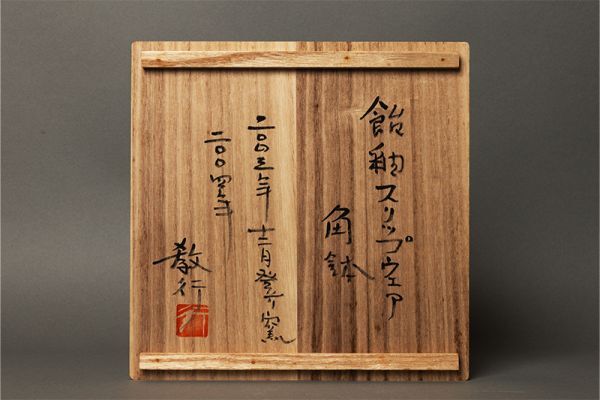 飴釉スリップウェア
角鉢
二〇〇三年 十二月登り窯
二〇〇四年
教行